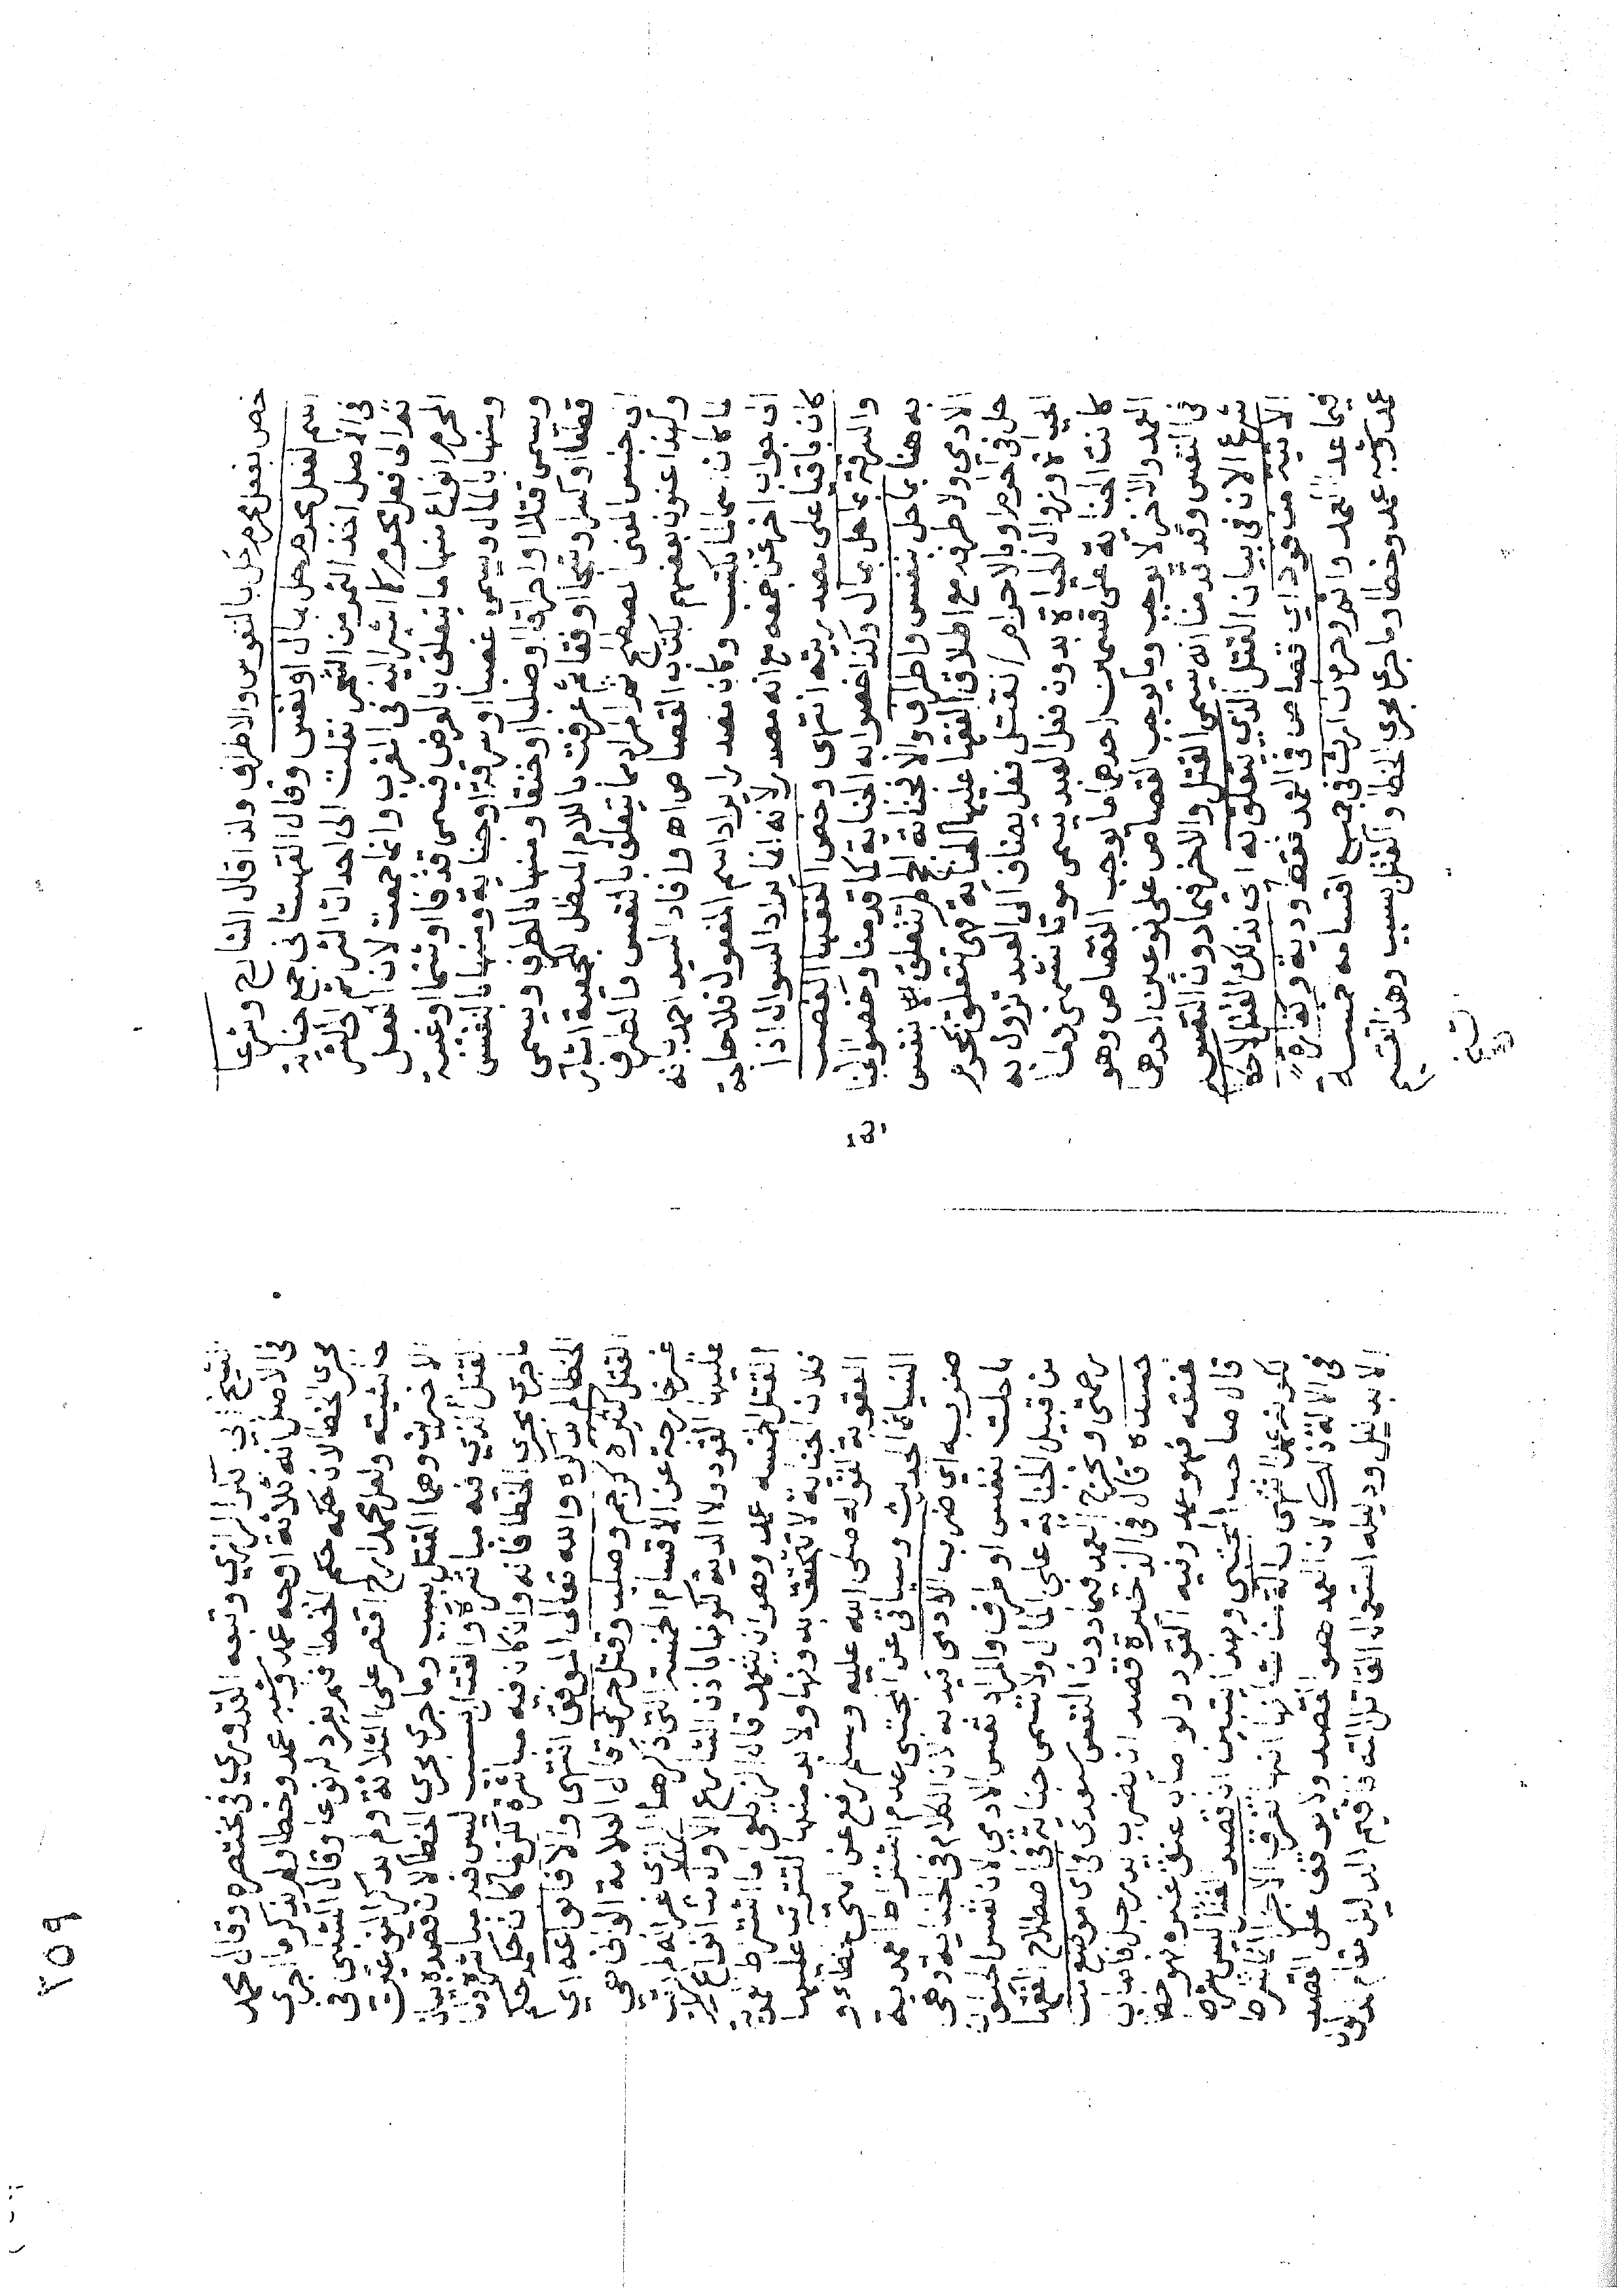 خص بفعل محرم حل بالنفوس والاطراف ولذا قال الشارح وشرعا
اسم لفعل محرم حل بمال او نفس وقال القهستاني جمع جناية
في الاصل اخذ الثمر من الشجر نقلت الى احداث الشر ثم الى الشر
ثم الى فعل محرم كما اشير اليه في المغرب وانما جمعت لان الفعل
المحرم انواع منها ما يتعلق بالعرض فيسمى قذفا او شتما او غيبة
ومنها بالمال ويسمى غصبا او سرقة او جناية ومنها بالنفس
ويسمى قتلا او احراقا او صلبا او خنقا ومنها بالطرف ويسمى
قطعا او كسرا او شجا او فقأ ثم عرفت باللام المبطل للجمعية اشارة
ان جنس المعنى المصطلح مراد بما يتعلق بالنفس والطرف
ولهذا عنون بعضهم بكتاب القصاص اه وافاد السيد احمد بانه
ما كان مكتسب وكان مصدر ايراد اسم المفعول فلا حاجة
الى جواب اخر عن جمعه مع انه مصدر لانه انما يراد السؤال اذا
كان باقيا على مصدريته انتهى وخص الفقهاء الغصب
والسرقة بما حل بمال وكذا خصوا به الجناية كما قدمنا وخصوا الجنا
به هنا بما حل بنفس واطراف والا فجناية تتعلق لا بنفس
الادمي ولا طرفه مع اطلاق الفقها عليها الجناية فهي تتعلق بمحرم
حل في الحرم او بالاحرام القتل فعل يضاف الى العبد تزول به
الحياة وزوال الحياة بدون فعل العبد يسمى موتا
كانت الجناية على قسمين احدهما ما يوجب القصاص وهو
العمد والاخر لا يوجب وما يوجب القصاص على نوعين احدهما
في النفس وقد قدمنا انه يسمى القتل والاخر فيما دون النفس
شرع الان في بيان القتل الذي يتعلق به اي بذلك القتل الاحكام
الاتية من قود اي قصاص في العمد فقط ودية وكفارة
فيما عدا العمد واثم وحرمان ارث في جميع اقسامه خمسة
عمد وشبه عمد وخطا وما جرى مجرى الخطا والقتل بسبب وهذا تقسيم
١٥١
الشيخ ابي بكر الرازي وتبعه القدوري في مختصره وقال محمد
في الاصل انه ثلاثة اوجه عمد وشبه عمد وخطا ولم يذكر ما جرى
مجرى الخطا لان حكمه حكم الخطا فلم يفرد له نوعا وقال الشلبي في
حاشيته ولعل محمدا رح اقتصر على الثلاثة ولم يذكر النوعين
الاخرين وهما القتل بسبب وما جرى مجرى الخطا لان قصده بيان
القتل الذي فيه مباشرة والقتل بسبب ليس فيه مباشرة واما
ما جرى مجرى الخطا فانه وان كان فيه مباشرة لكن لما كان حكمه حكم
الخطا لم يذكره والله تعالى الموفق انتهى والا فانواعه اي
القتل كثيرة كرجم وصلب وقتل حربي قال العلامة الواني هي
غير خارجة عن الاقسام الخمسة التي ذكرها الرازي غير انه لم يترتب
عليها القود ولا الدية لكونها باذن الشارع الاول من انواع
القتل الخمسة عمد وهو ان يتعمد قال الزيلعي اما اشتراط العمدية
فلان الجناية لا تتحقق بدونها ولا بد منها لتترتب عليها
العقوبة لقوله صلى الله عليه وسلم رفع عن امتي الخطا و
النسيان الحديث وسياتي عن المجتبى عدم اشتراط العمدية
ضربه اي ضرب الادمي قيد به لان الكلام في الجناية وهي
ما حلت بنفس او طرف والمراد نفس الادمي لان نفس الحيوان
من قبيل الجناية على المال ولا تسمى جناية في اصطلاح الفقها
رحمتي ويخرج العمد فيما دون النفس سعدي في اي موضع من
جسده قال في الذخيرة قصد ان يضرب يد رجل فاصاب
عنقه فهو عمد وفيه القود ولو اصاب عنق غيره فهو خطا
قال صاحب المجتبى وبهذا تبين ان قصد القتل ليس بشرط
لكونه عمدا انتهى بآلة من شانها انها تفرق الاجزاء اشترط
في الالة ذلك لان العمد هو القصد ولا يوقف على القصد
الا بدليل ودليله استعمال القاتل الته فاقيم الدليل مقام المدلول
٢٥٩